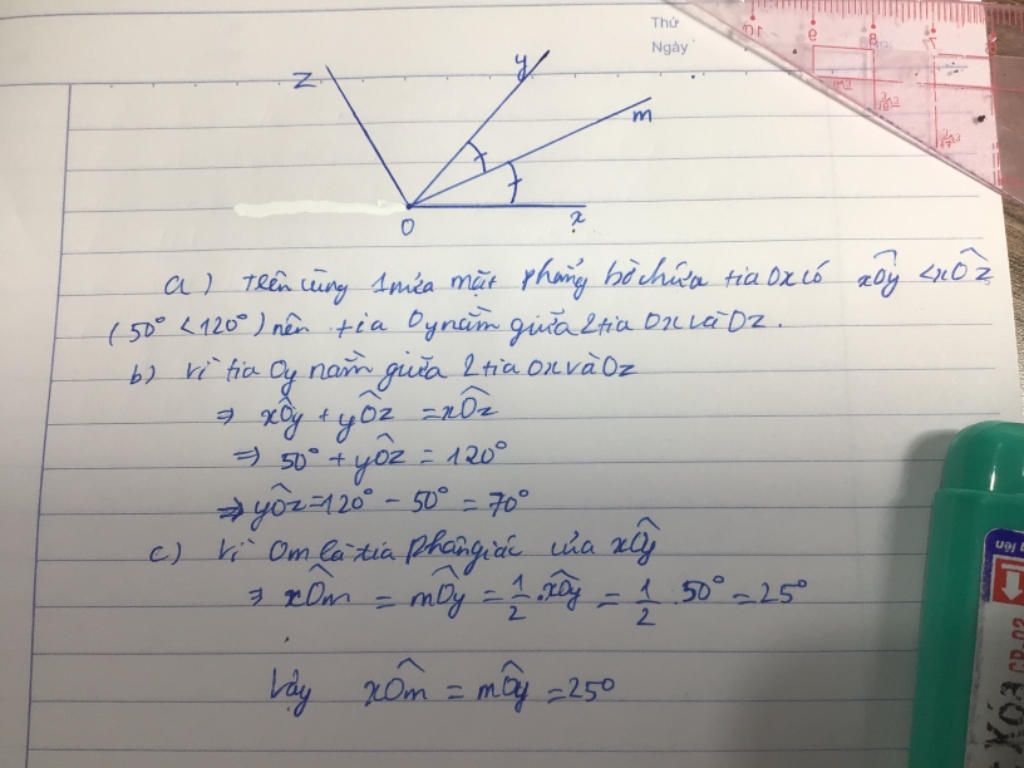 Thứ
Ngày
10 9 8 7
z
y
m
O
x
a) trên cùng 1 nửa mặt phẳng bờ chứa tia Ox có xÔy < xÔz
(50° < 120°) nên tia Oy nằm giữa 2 tia Ox và Oz.
b) Vì tia Oy nằm giữa 2 tia Ox và Oz
⇒ xÔy + yÔz = xÔz
⇒ 50° + yÔz = 120°
⇒ yÔz = 120° - 50° = 70°
c) Vì Om là tia phân giác của xÔy
⇒ xÔm = mÔy = 1/2 . xÔy = 1/2 . 50° = 25°
Vậy xÔm = mÔy = 25°
CP-02
XÓA